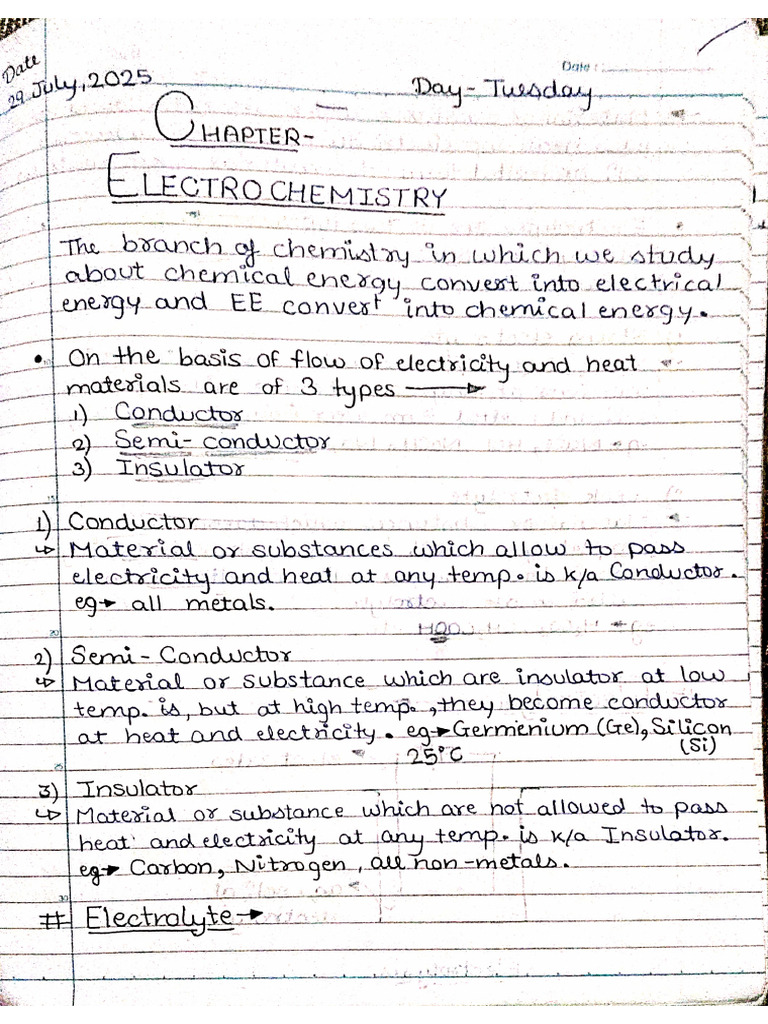 Date
29 July, 2025
Date :
Day - Tuesday
CHAPTER-
ELECTROCHEMISTRY
The branch of chemistry in which we study
about chemical energy convert into electrical
energy and EE convert into chemical energy.
• On the basis of flow of electricity and heat
materials are of 3 types →
1) Conductor
2) Semi-conductor
3) Insulator
1) Conductor
↳ Material or substances which allow to pass
electricity and heat at any temp. is k/a Conductor.
eg→ all metals.
2) Semi-Conductor
↳ Material or substance which are insulator at low
temp. is, but at high temp., they become conductor
at heat and electricity. eg→ Germenium (Ge), Silicon
25°C (Si)
3) Insulator
↳ Material or substance which are not allowed to pass
heat and electricity at any temp. is k/a Insulator.
eg→ Carbon, Nitrogen, all non-metals.
# Electrolyte →